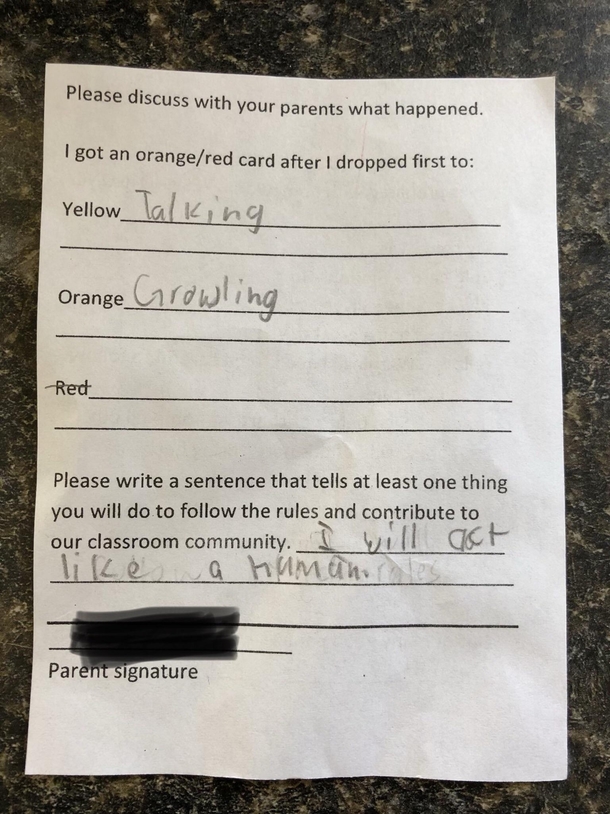 Please discuss with your parents what happened.
I got an orange/red card after I dropped first to:
Yellow Talking
Orange Growling
Red
Please write a sentence that tells at least one thing
you will do to follow the rules and contribute to
our classroom community. I will act
like a human.
Parent signature